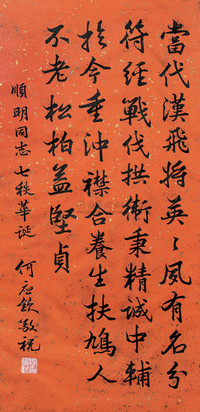 當代漢飛將英〻夙有名分
符經戰伐拱衛秉精誠中輔
於今垂沖襟合養生扶鳩人
不老松柏益堅貞
順明同志七秩華誕
何應欽敬祝